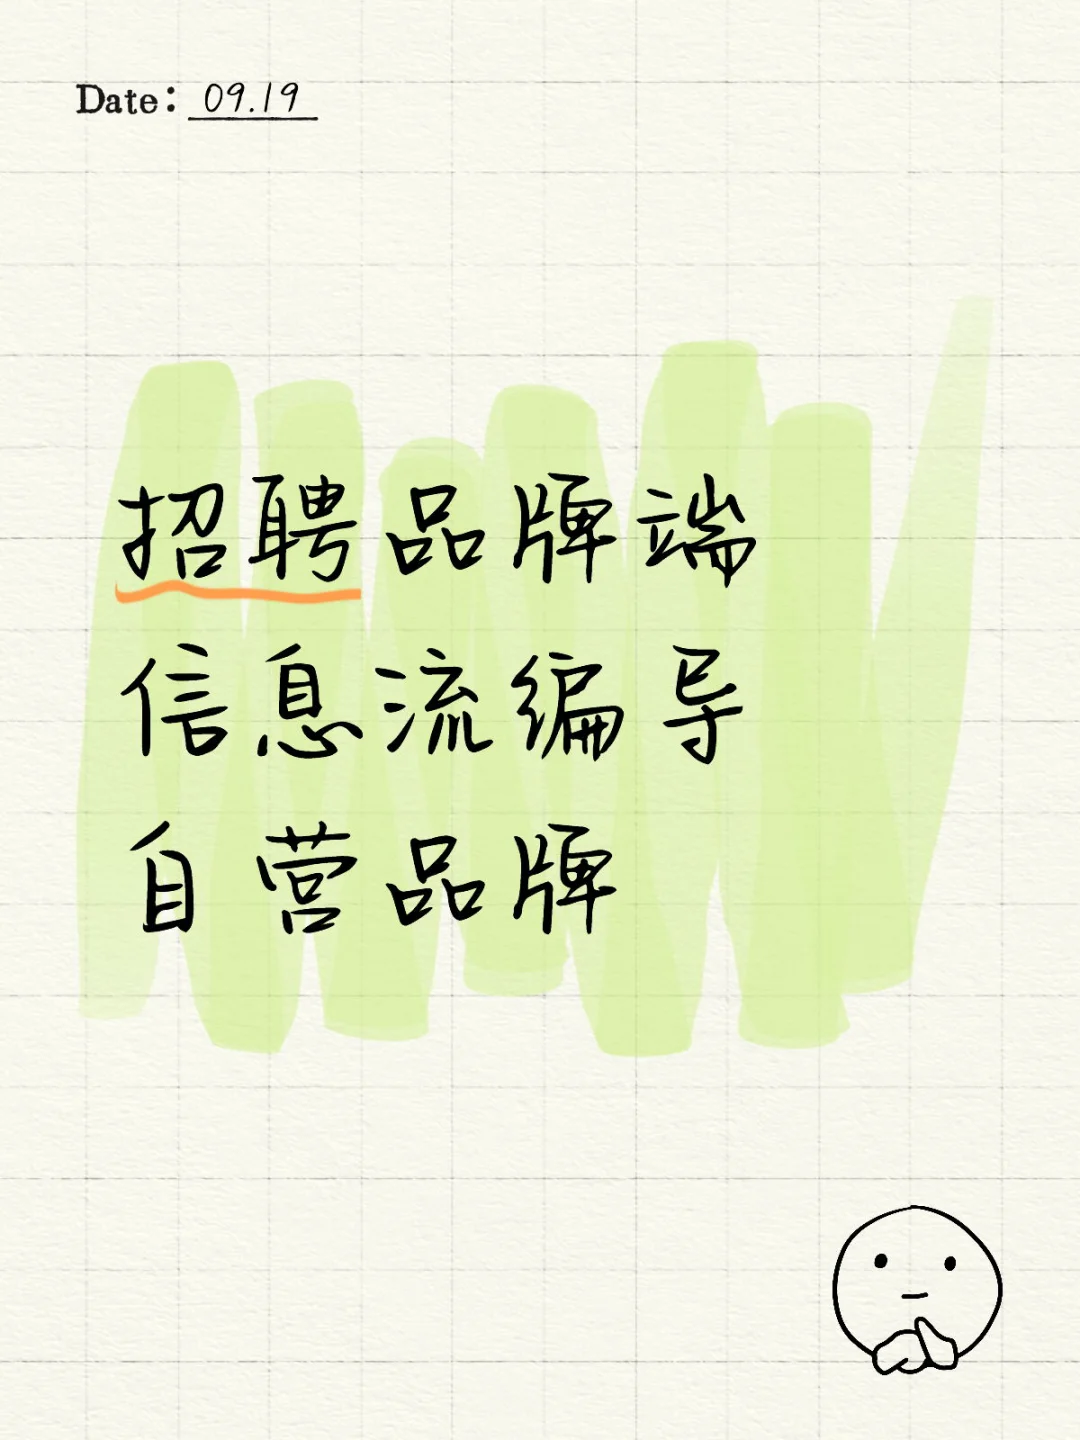 Date: 09.19
招聘品牌端
信息流编导
自营品牌